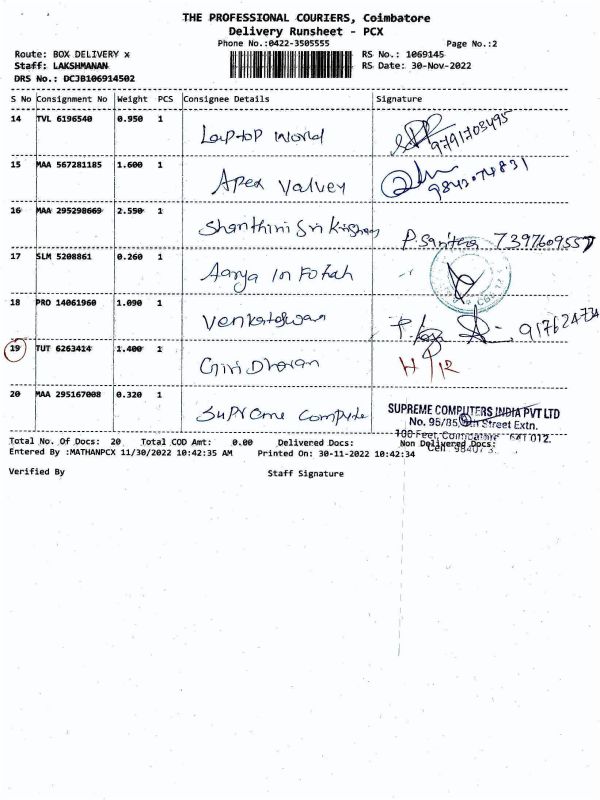 THE PROFESSIONAL COURIERS, Coimbatore
Delivery Runsheet - PCX
Phone No.:0422-3505555 Page No.:2
Route: BOX DELIVERY x RS No.: 1069145
Staff: LAKSHMANAN RS Date: 30-Nov-2022
DRS No.: DCJB106914502
S No Consignment No Weight PCS Consignee Details Signature
14 TVL 6196540 0.950 1 Laptop World 9791703495
15 MAA 567281185 1.600 1 Apex Valvey 9843074831
16 MAA 295298669 2.550 1 Shanthini Sri Krishnan P. Santhra 7397609557
17 SLM 5208861 0.260 1 Aarya
18 PRO 14061960 1.090 1 Venkateswan 917624734
19 TUT 6263414 1.400 1 Giri Dharan H/R
20 MAA 295167008 0.320 1 Supreme Compute
SUPREME COMPUTERS INDIA PVT LTD
No. 95/85, Street Extn.
100 Feet, Coimbatore 641 012.
Total No. Of Docs: 20 Total COD Amt: 0.00 Delivered Docs: Non Delivered Docs:
Cell : 98407
Entered By :MATHANPCX 11/30/2022 10:42:35 AM Printed On: 30-11-2022 10:42:34
Verified By Staff Signature